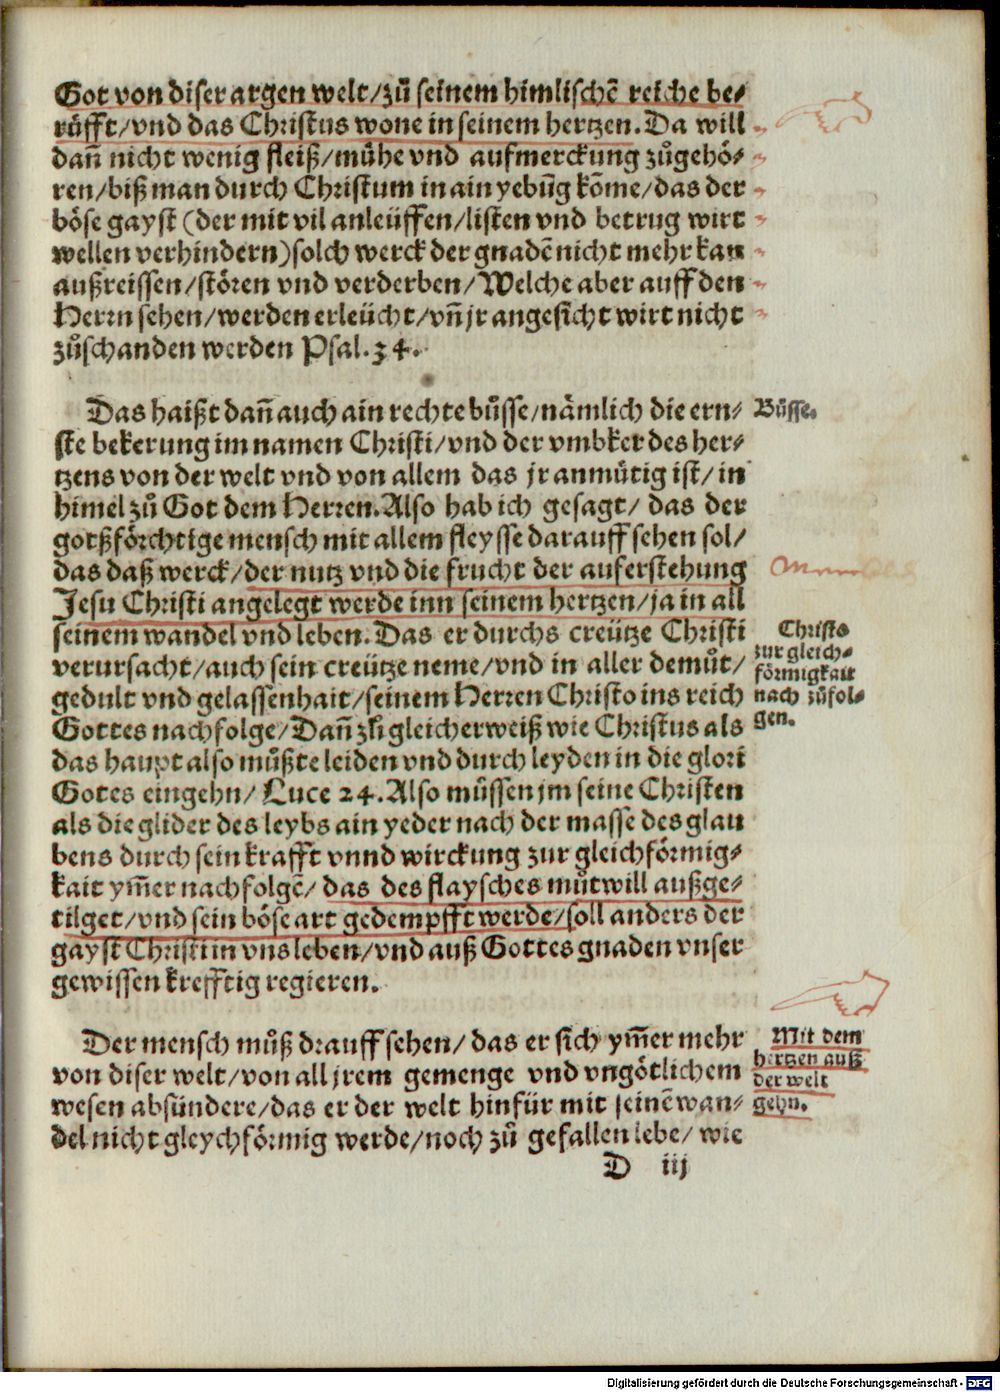 Got von diser argen welt/zů seinem himlischẽ reiche be⸗
růfft/vnd das Christus wone in seinem hertzen. Da will
dañ nicht wenig fleiß/můhe vnd aufmerckung zůgehö⸗
ren/biß man durch Christum in ain yebũg kõme/das der
böse gayst (der mit vil anleüffen/listen vnd betrug wirt
wellen verhindern) solch werck der gnadẽ nicht mehr kan
außreissen/stören vnd verderben/Welche aber auff den
Herrn sehen/werden erleücht/vñ jr angesicht wirt nicht
zůschanden werden Psal. 34.
Das haißt dañ auch ain rechte bůsse/nämlich die ern⸗
Bůsse.
ste bekerung im namen Christi/vnd der vmbker des her⸗
tzens von der welt vnd von allem das jr anmůtig ist/in
himel zů Got dem Herren. Also hab ich gesagt/ das der
gotßförchtige mensch mit allem fleysse darauff sehen sol/
das daß werck/der nutz vnd die frucht der auferstehung
Jesu Christi angelegt werde inn seinem hertzen/ja in all
seinem wandel vnd leben. Das er durchs creütze Christi
verursacht/auch sein creütze neme/vnd in aller demůt/
gedult vnd gelassenhait/seinem Herren Christo ins reich
Gottes nachfolge/Dañ zů gleicherweiß wie Christus als
Christo
zur gleich⸗
förmigkait
nach zůfol⸗
gen.
das haupt also můßte leiden vnd durch leyden in die glori
Gotes eingehn/ Luce 24. Also müssen jm seine Christen
als die glider des leybs ain yeder nach der masse des glau
bens durch sein krafft vnnd wirckung zur gleichförmig⸗
kait ym̃er nachfolgẽ/ das des flaysches můtwill außge⸗
tilget/vnd sein böse art gedempfft werde/soll anders der
gayst Christi in vns leben/vnd auß Gottes gnaden vnser
gewissen krefftig regieren.
Der mensch můß drauff sehen/das er sich ym̃er mehr
von diser welt/von all jrem gemenge vnd vngötlichem
wesen absündere/das er der welt hinfür mit seinẽ wan⸗
del nicht gleychförmig werde/noch zů gefallen lebe/ wie
Mit dem
hertzen auß
der welt
gehn.
D iij
Digitalisierung gefördert durch die Deutsche Forschungsgemeinschaft - DFG